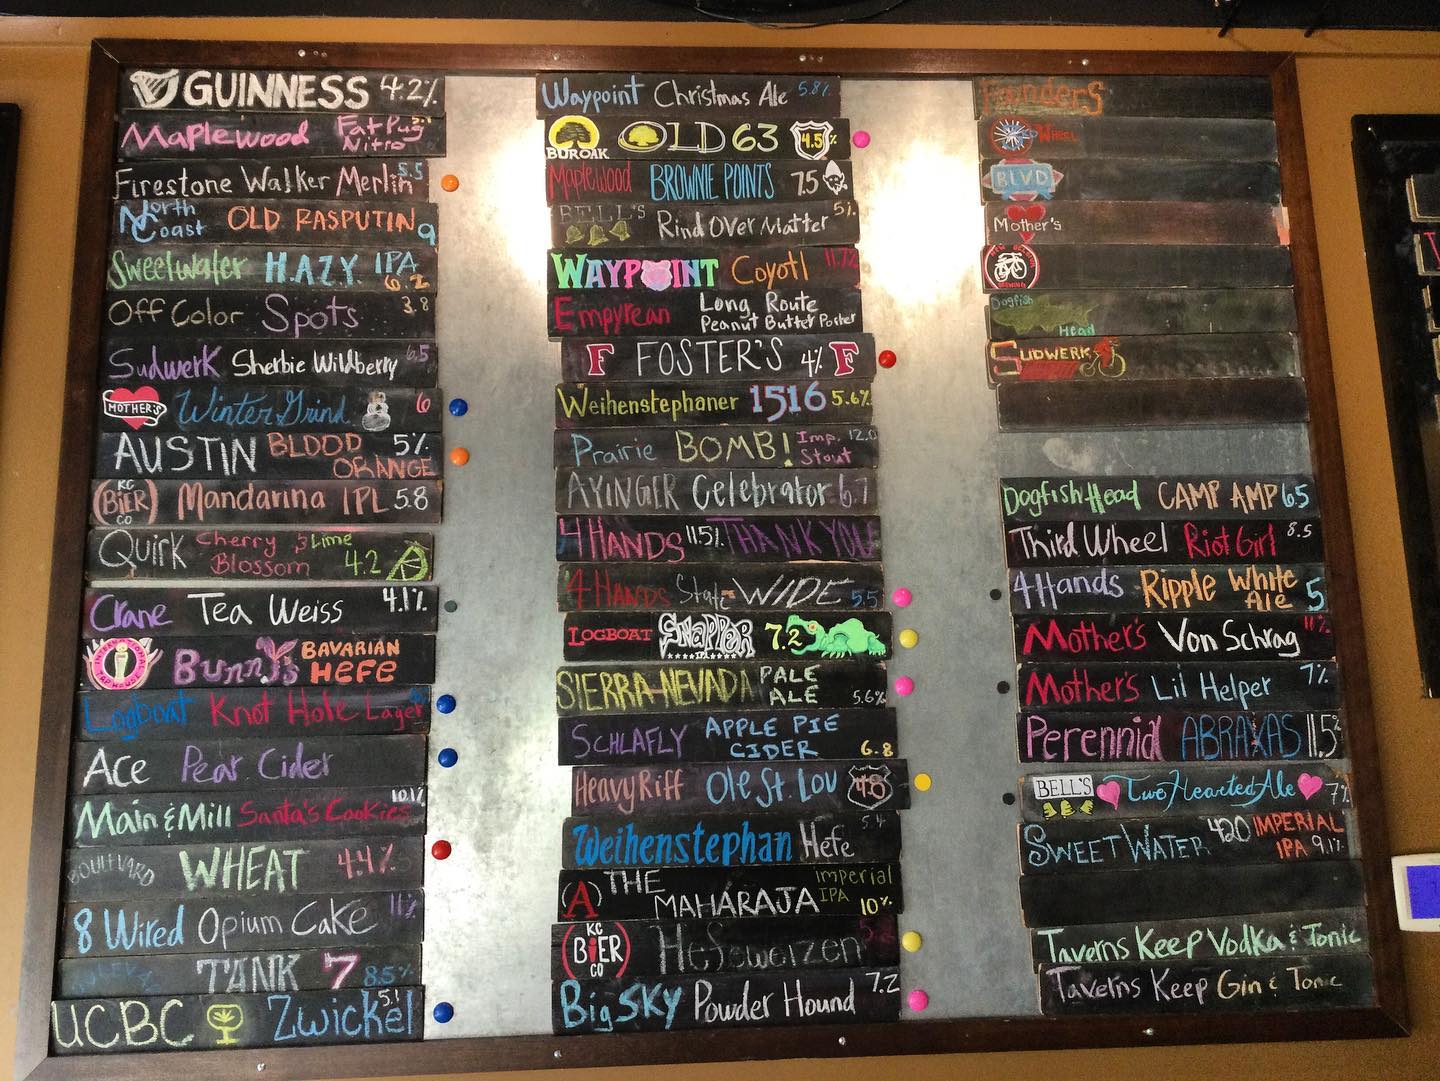 GUINNESS 4.2%
Maplewood Fat Pug Nitro
Firestone Walker Merlin 5.5
North Coast OLD RASPUTIN 9
Sweetwater H.A.Z.Y. IPA 6.2
Off Color Spots 3.8
Sudwerk Sherbie Wildberry 6.5
MOTHER'S Winter Grind 6
AUSTIN BLOOD ORANGE 5%
KC BiER CO Mandarina IPL 5.8
Quirk Cherry Blossom & Lime 4.2
Crane Tea Weiss 4.1%
INTERNATIONAL TAP HOUSE Bunny's BAVARIAN HEFE
Logboat Knot Hole Lager
Ace Pear Cider
Main & Mill Santa's Cookies 10.1%
BOULEVARD WHEAT 4.4%
8 Wired Opium Cake 11%
TANK 7 8.5%
UCBC Zwickel 5.1
Waypoint Christmas Ale 5.8%
BUR OAK OLD 63 4.5%
Maplewood BROWNIE POINTS 7.5
BELL'S Rind Over Matter 5%
WAYPOINT Coyotl
Empyrean Long Route Peanut Butter Porter
F FOSTER'S 4% F
Weihenstephaner 1516 5.6%
Prairie BOMB! Imp. Stout 12.0
AYINGER Celebrator 6.7
4 HANDS 11.5% THANK YOU
4 HANDS State WIDE 5.5
LOGBOAT SNAPPER IPA 7.2
SIERRA NEVADA PALE ALE 5.6%
SCHLAFLY APPLE PIE CIDER 6.8
Heavy Riff Ole St. Lou 4.8
Weihenstephan Hefe 5.4
A THE MAHARAJA imperial IPA 10%
KC BiER CO Hefeweizen
Big SKY Powder Hound 7.2
Founders
WHEEL
BLVD
Mother's
Dogfish Head
SUDWERK
Dogfish Head CAMP AMP 6.5
Third Wheel Riot Girl 8.5
4 Hands Ripple White Ale 5
Mother's Von Schrag 11%
Mother's Lil Helper 7%
Perennial ABRAXAS 11.5%
BELL'S Two Hearted Ale 7%
SWEET WATER 420 IMPERIAL IPA 9.1%
Taverns Keep Vodka & Tonic
Taverns Keep Gin & Tonic